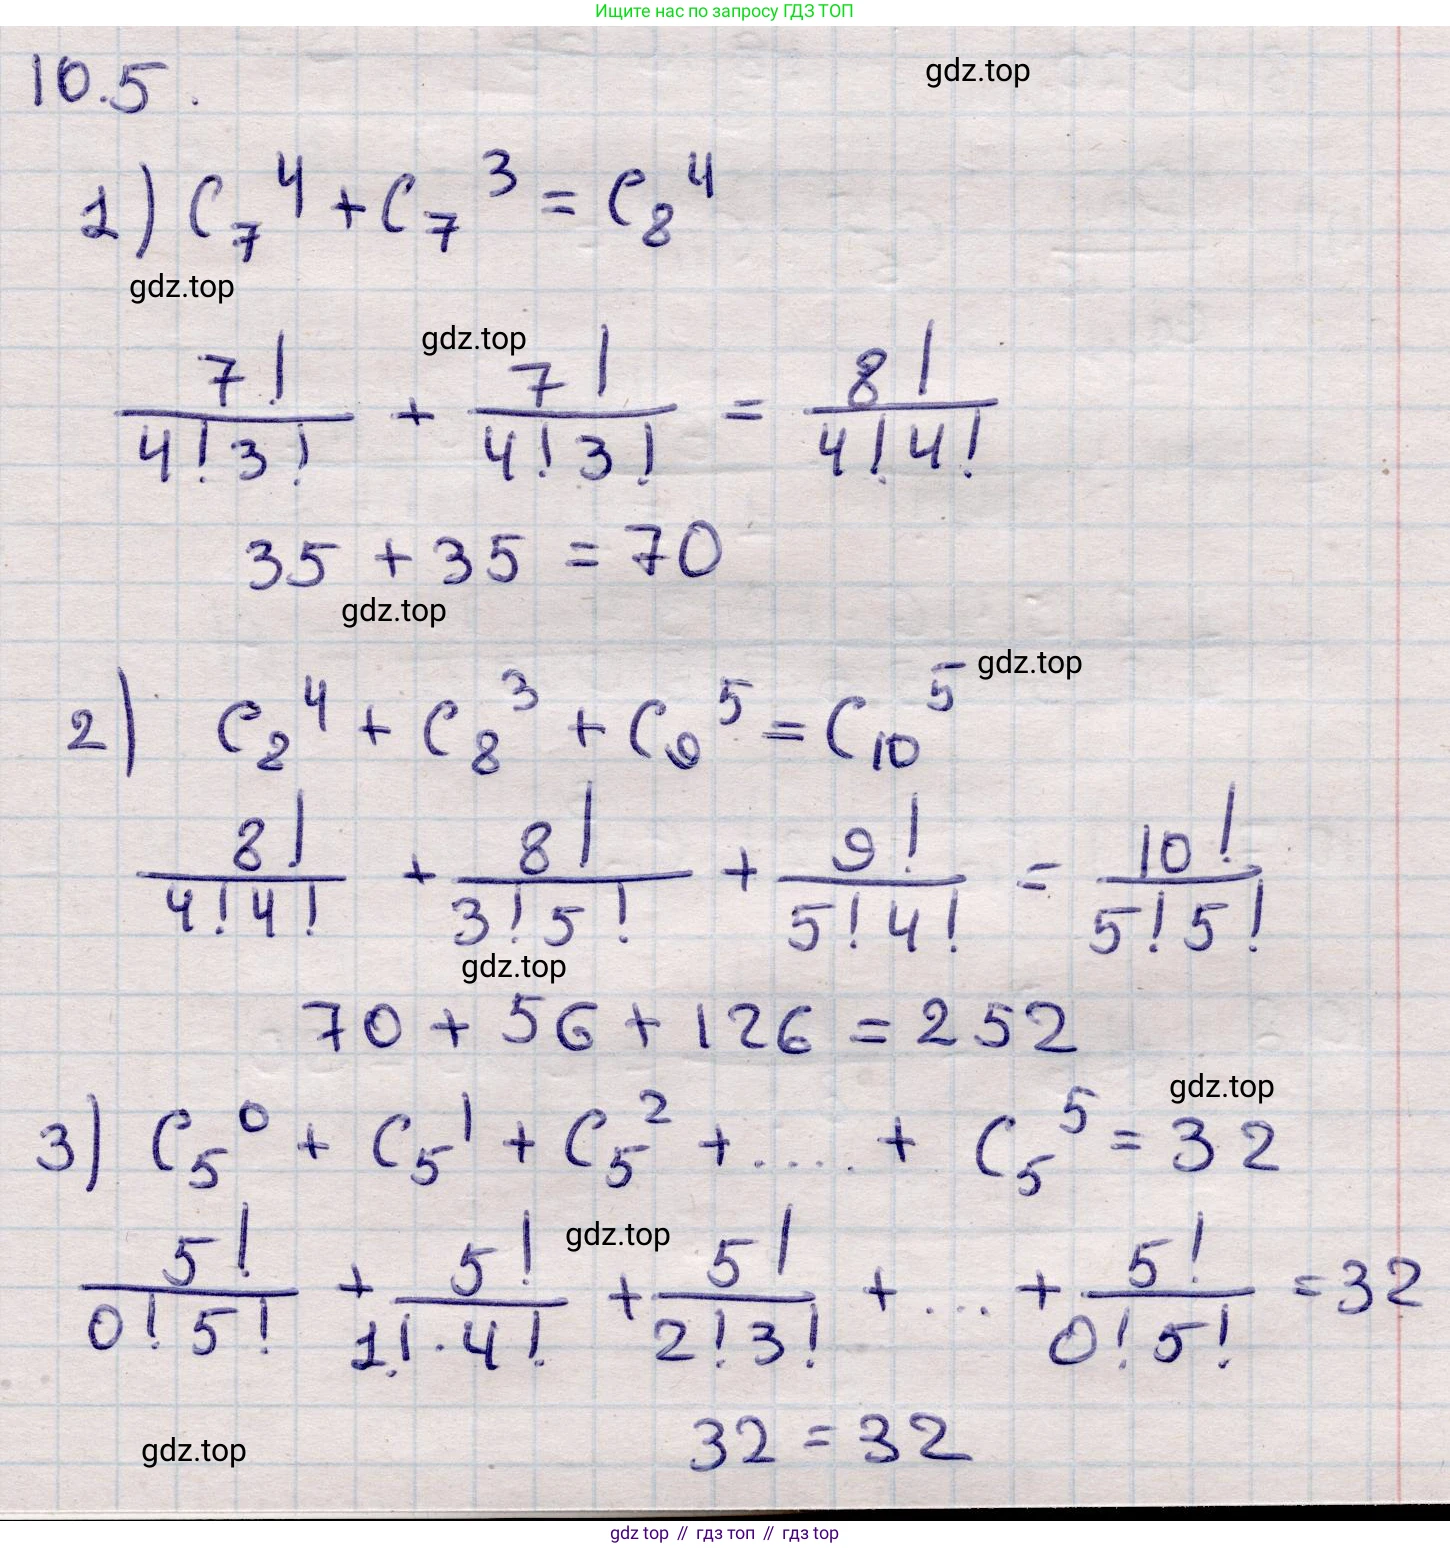 Ищите нас по запросу ГДЗ ТОП
10.5.
gdz.top
1) C₇⁴ + C₇³ = C₈⁴
gdz.top
gdz.top
7!/(4!3!) + 7!/(4!3!) = 8!/(4!4!)
35 + 35 = 70
gdz.top
gdz.top
2) C₂⁴ + C₈³ + C₉⁵ = C₁₀⁵
8!/(4!4!) + 8!/(3!5!) + 9!/(5!4!) = 10!/(5!5!)
gdz.top
70 + 56 + 126 = 252
gdz.top
3) C₅⁰ + C₅¹ + C₅² + .... + C₅⁵ = 32
gdz.top
5!/(0!5!) + 5!/(1!·4!) + 5!/(2!3!) + ... + 5!/(0!5!) = 32
32 = 32
gdz.top
gdz top // гдз топ // гдз top